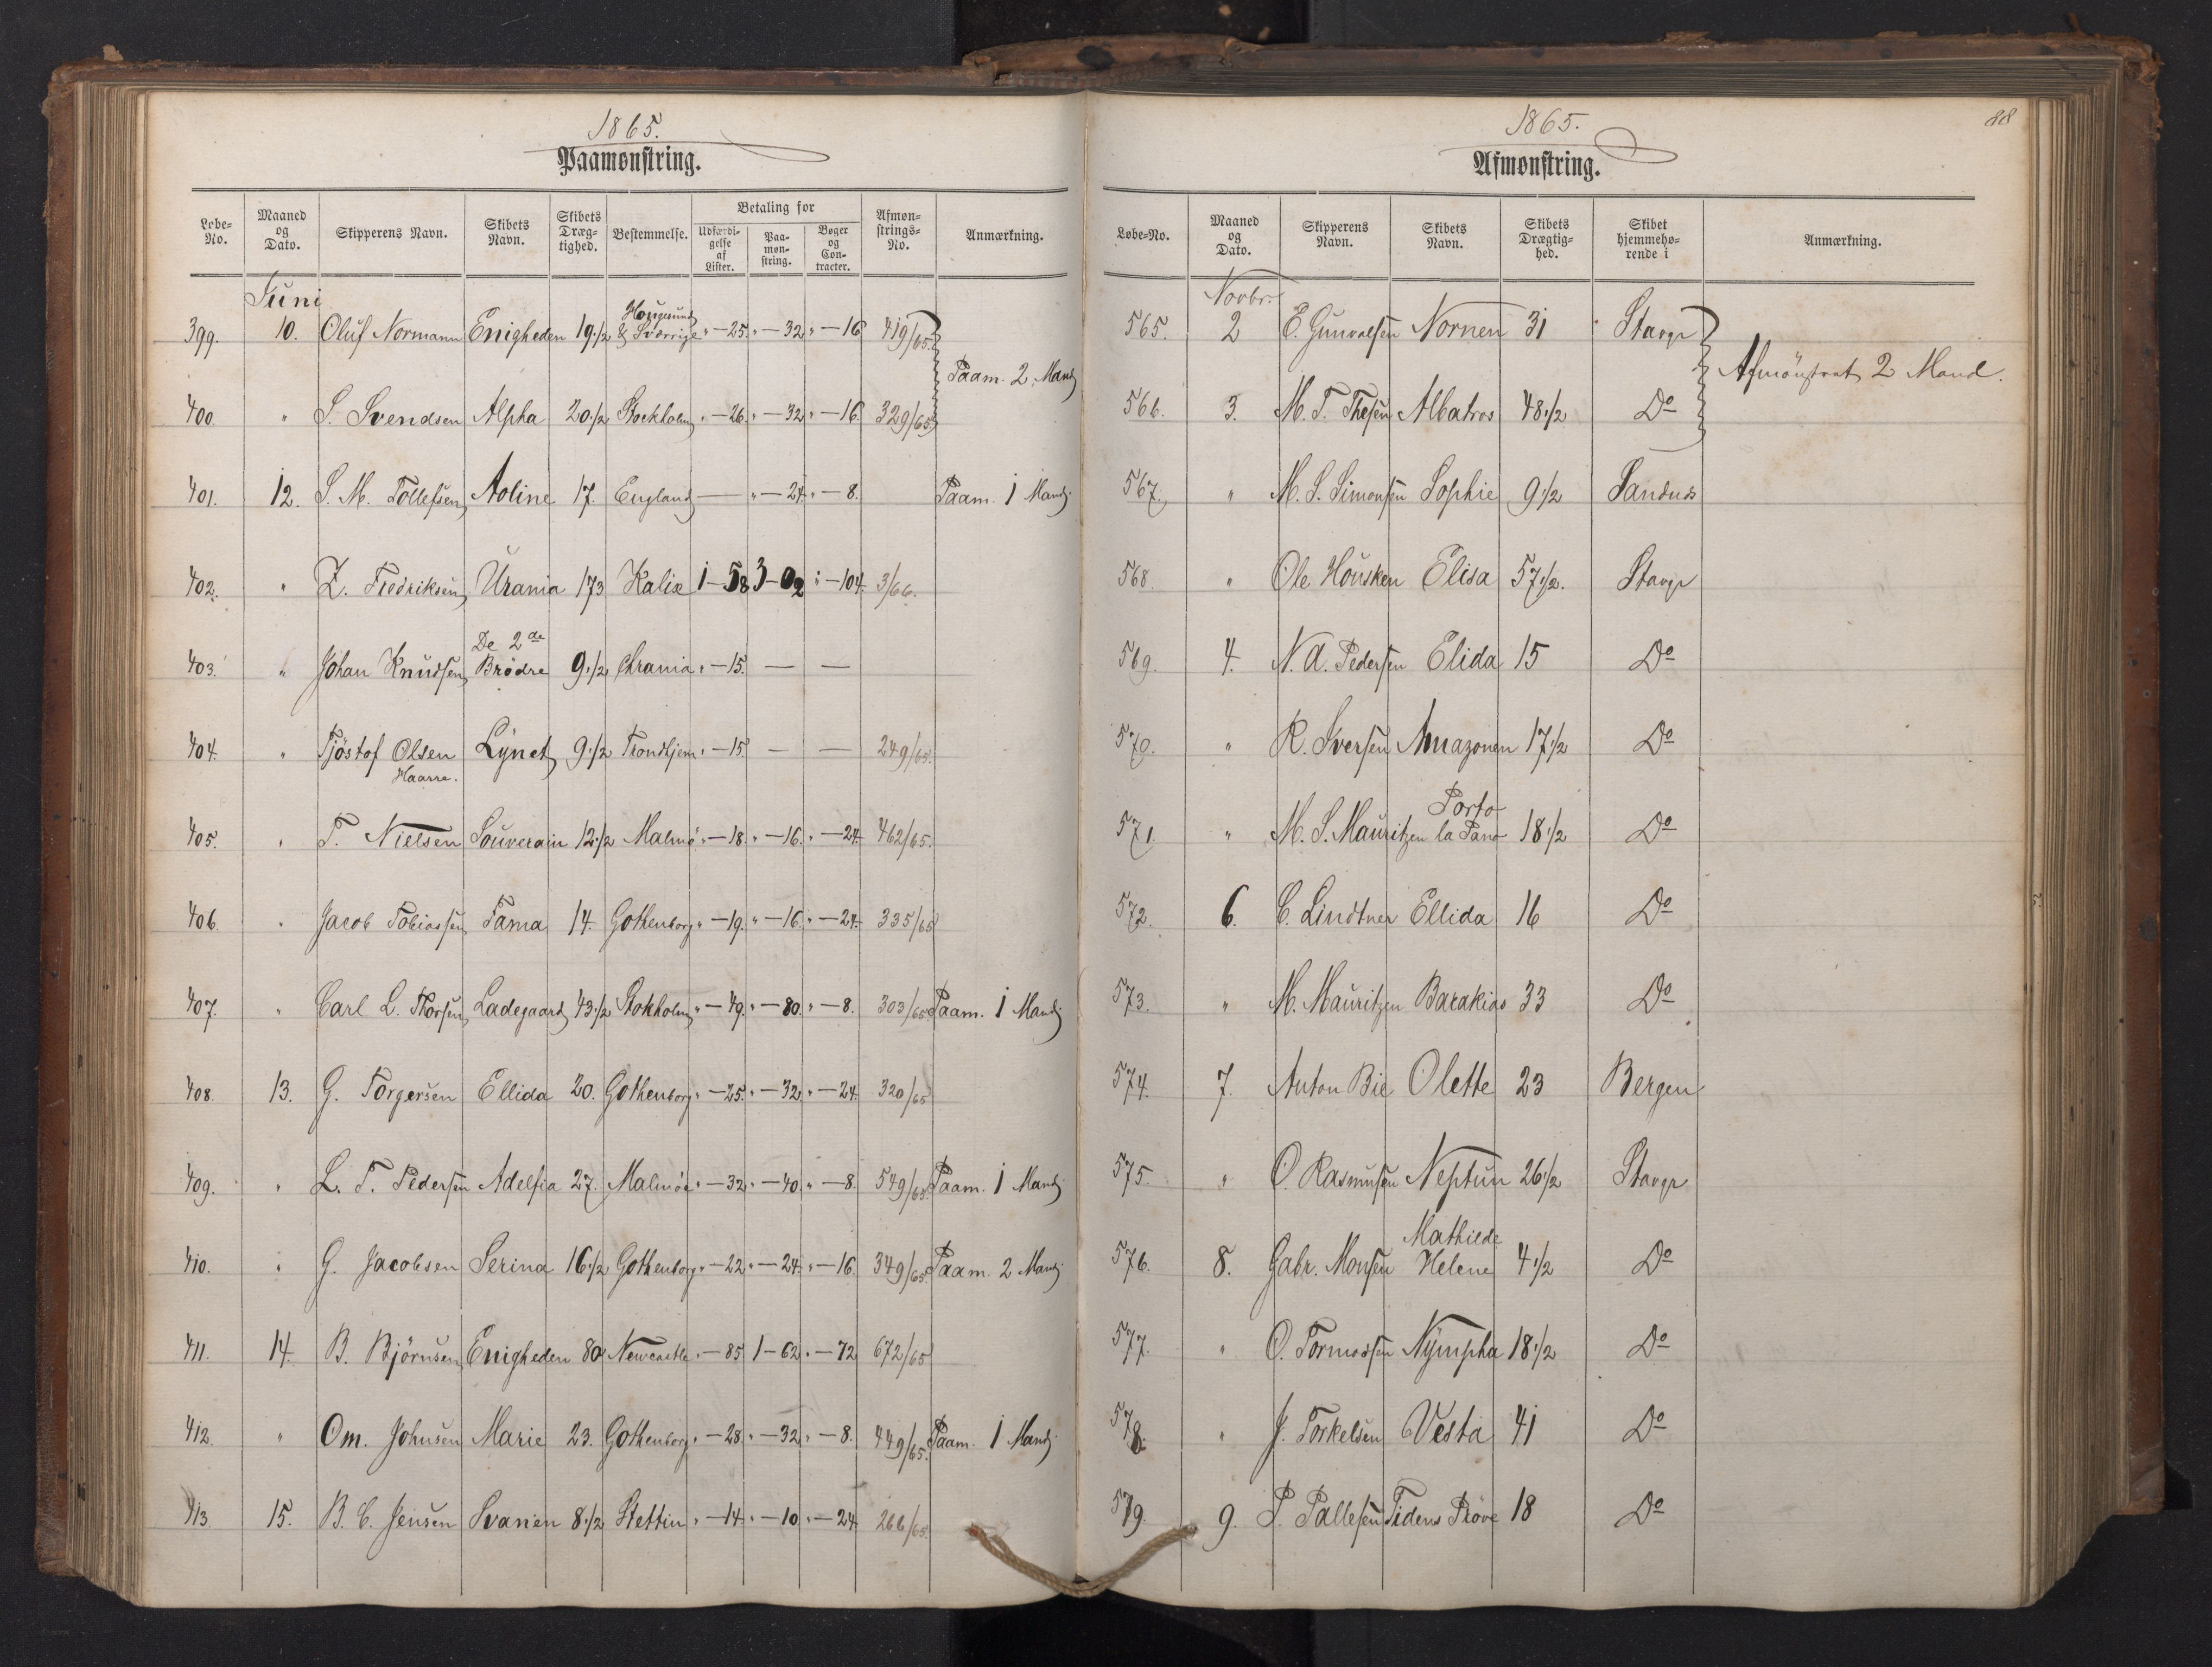 1865.
Paamønstring.
Løbe-No. Maaned og Dato. Skipperens Navn. Skibets Navn. Skibets Drægtighed. Bestemmelse. Betaling for Udfærdigelse af Lister. Paamønstring. Bøger og Contracter. Afmønstrings-No. Anmærkning.
Juni
399. 10. Oluf Normann Enigheden 19 1/2 Hougesund & Sverrige " — 25. " — 32 " — 16 419/65.
Paam. 2 Mand
400. " S. Svendsen Alpha 20 1/2 Stockholm " — 26. " — 32 " — 16. 329/65.
401. 12. S. M. Tollefsen Aoline 17. England — " — 24. " — 8. Paam. 1 Mand.
402. " Z. Fredriksen Urania 173 Kalix 1 — 58 3 — 02 " — 104. 3/66.
403. " Johan Knudsen De 2de Brödre 9 1/2 Chrania " — 15. — —
404. " Tjöstof Olsen Haarre. Lynet 9 1/2 Trondhjem " — 15. — — 249/65.
405. " T. Nielsen Souverain 12 1/2 Malmö " — 18. " — 16. " — 24. 462/65.
406. " Jacob Tobiassen Fama 14. Gothenborg " — 19. " — 16. " — 24. 335/65
407. " Carl L. Thorsen Ladegaard 43 1/2 Stokholm " — 49. " — 80. " — 8. 303/65 Paam. 1 Mand.
408. 13. G. Torgersen Ellida 20. Gothenborg " — 25. " — 32 " — 24. 320/65
409. " L. T. Pedersen Adelfia 27. Malmöe " — 32 " — 40. " — 8. 549/65 Paam. 1 Mand.
410. " G. Jacobsen Serina 16 1/2 Gothenborg " — 22 " — 24. " — 16. 349/65 Paam. 2 Mand.
411. 14. B. Björnsen Enigheden 80 Newcastle " — 85 1 — 62 " — 72 672/65
412. " Om. Johnsen Marie 23. Gothenborg " — 28. " — 32 " — 8. 449/65. Paam. 1 Mand.
413. 15. B. C. Jensen Svanen 8 1/2 Stettin " — 14. " — 10 " — 24. 266/65.
88
1865.
Afmønstring.
Løbe-No. Maaned og Dato. Skipperens Navn. Skibets Navn. Skibets Drægtighed. Skibet hjemmehørende i Anmærkning.
Novbr.
565. 2 E. Gunvalsen Nornen 31 Stavgr
Afmönstret 2 Mand.
566. 3. M. T. Thesen Albatros 48 1/2 Do
567. " M. S. Simonsen Sophie 9 1/2 Sandnds
568. " Ole Housken Elisa 57 1/2. Stavgr
569. 4. N. A. Pedersen Elida 15 Do
570. " R. Iversen Amazonen 17 1/2 Do
571. " M. S. Mauritzen Porto la Pano 18 1/2 Do
572. 6. C. Lindtner Ellida 16 Do
573. " M. Mauritzen Barakias 33 Do
574. 7. Anton Bie Olette 23 Bergen
575. " O. Rasmusen Neptun 26 1/2 Stavgr
576. 8. Gabr. Monsen Mathilde Helene 4 1/2 Do
577. " O. Tormodsen Nympha 18 1/2 Do
578. " J. Torkelsen Vesta 41 Do
579. 9. P. Pallesen Tidens Pröve 18 Do